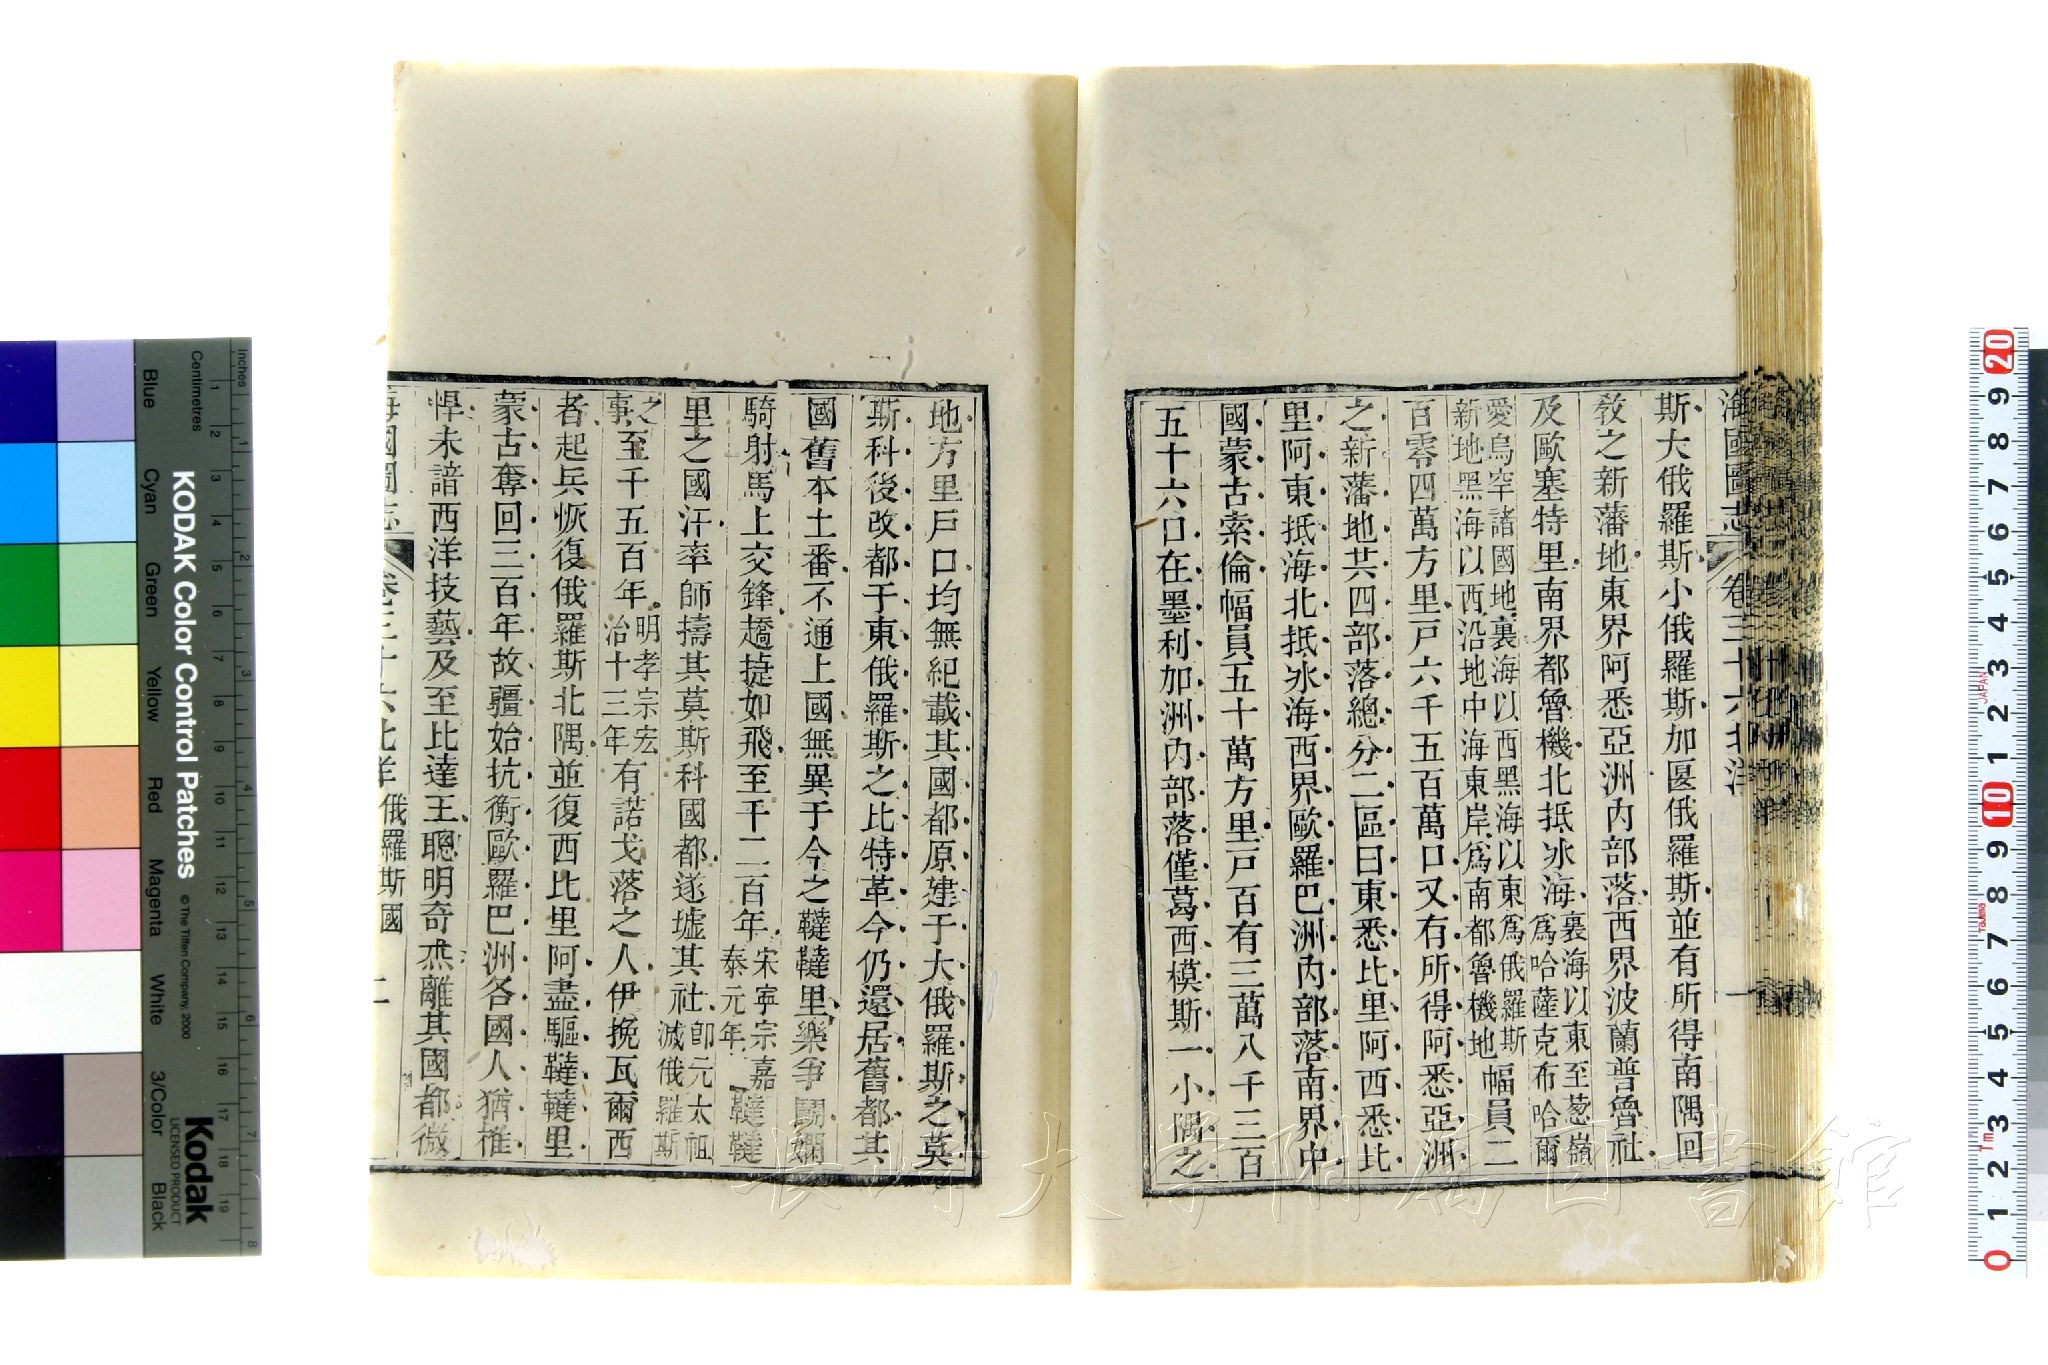 海國圖志 卷三十六 北洋 一
斯大俄羅斯小俄羅斯加匽俄羅斯並有所得南隅回
教之新藩地東界阿悉亞洲內部落西界波蘭普魯社
及歐塞特里南界都魯機北抵冰海裏海以東至葱嶺爲哈薩克布哈爾
愛烏罕諸國地裏海以西黑海以東爲俄羅斯新地黑海以西沿地中海東岸爲南都魯機地幅員二
百零四萬方里戸六千五百萬口又有所得阿悉亞洲
之新藩地共四部落總分二區曰東悉比里阿西悉比
里阿東抵海北抵冰海西界歐羅巴洲內部落南界中
國蒙古索倫幅員五十萬方里戸百有三萬八千三百
五十六口在墨利加洲內部落僅葛西模斯一小隅之
地方里戸口均無紀載其國都原建于大俄羅斯之莫
斯科後改都于東俄羅斯之比特革今仍還居舊都其
國舊本土番不通上國無異于今之韃韃里樂爭鬭嫺
騎射馬上交鋒趫捷如飛至千二百年宋寧宗嘉泰元年韃韃
里之國汗率師擣其莫斯科國都遂墟其社卽元太祖滅俄羅斯
之事至千五百年明孝宗宏治十三年有諾戈落之人伊挽瓦爾西
者起兵恢復俄羅斯北隅並復西比里阿盡驅韃韃里
蒙古奪回三百年故疆始抗衡歐羅巴洲各國人猶椎
悍未諳西洋技藝及至比達王聰明奇杰離其國都微
海國圖志 卷三十六 北洋 俄羅斯國 二
長崎大学附属図書館
KODAK Color Control Patches
© The Tiffen Company, 2000
Kodak
LICENSED PRODUCT
Blue Cyan Green Yellow Red Magenta White 3/Color Black
Inches 1 2 3 4 5 6 7 8
Centimetres 1 2 3 4 5 6 7 8 9 10 11 12 13 14 15 16 17 18 19
20 9 8 7 6 5 4 3 2 1 10 9 8 7 6 5 4 3 2 1 0
JAPAN